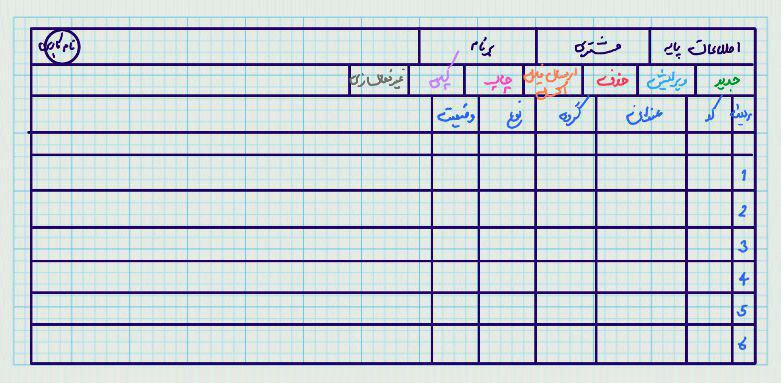 اطلاعات پایه مشتری برنام نام کاربری
جدید ویرایش حذف ارسال فایل اکسل چاپ کپی غیرفعالسازی
ردیف کد عنوان گروه نوع وضعیت
1
2
3
4
5
6